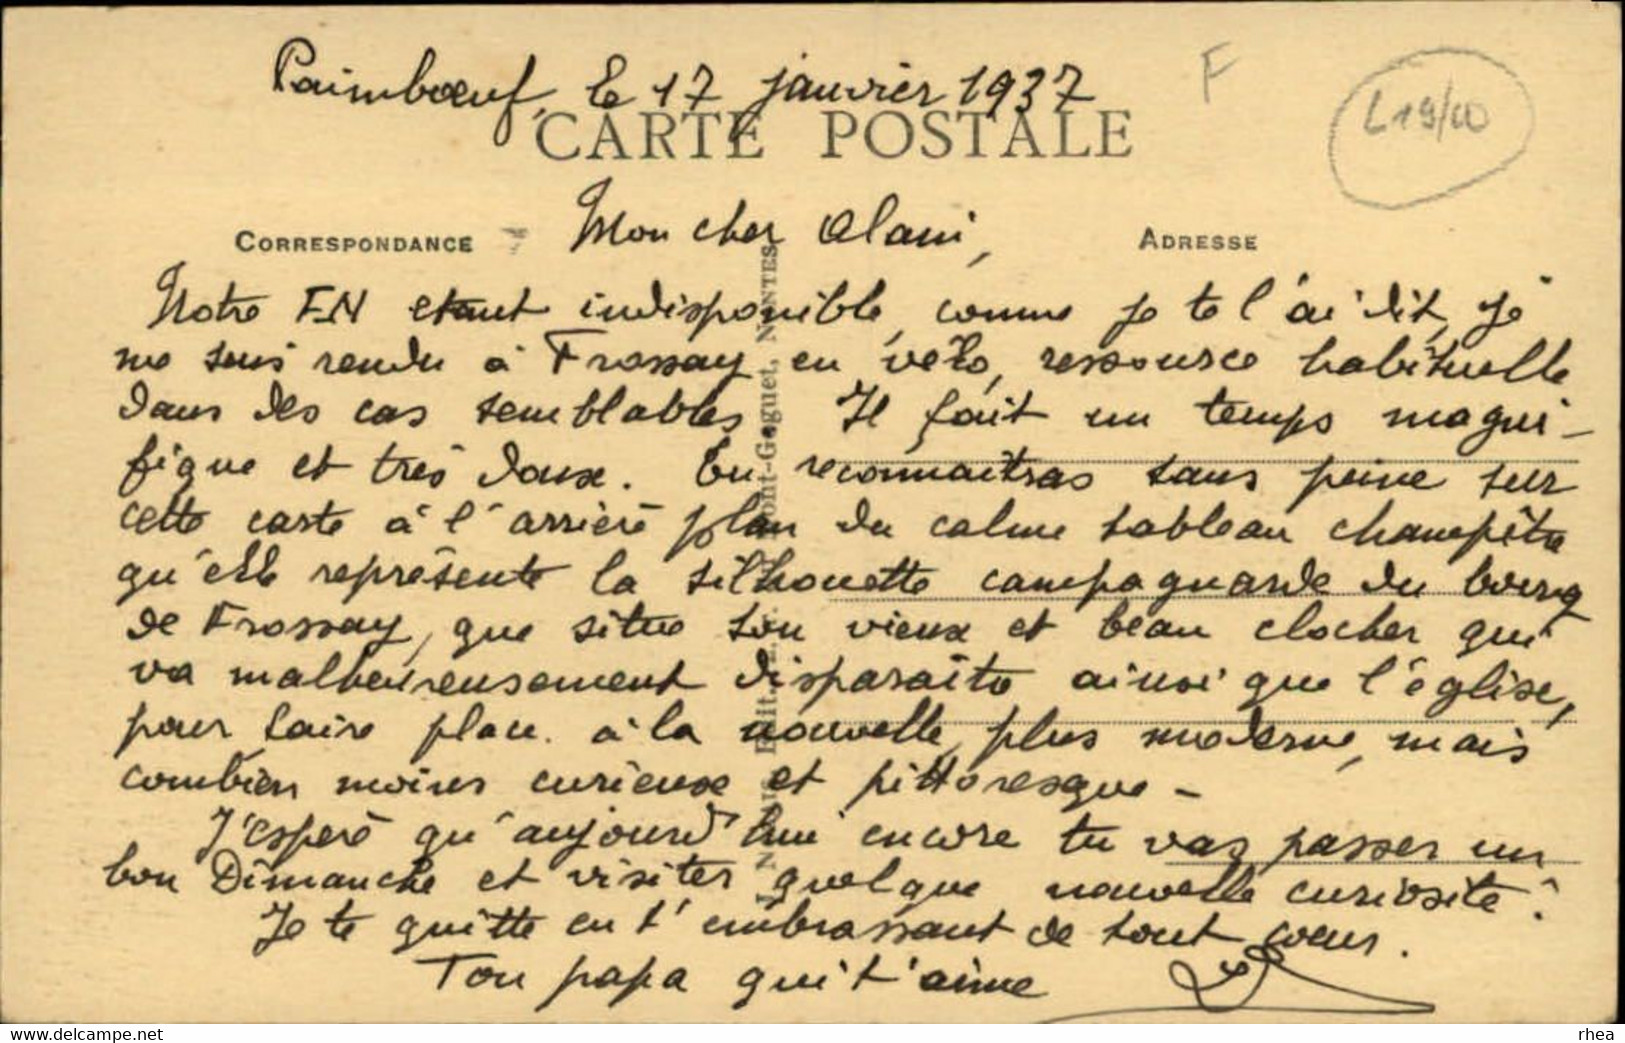 Paimbœuf, le 17 janvier 1937
F
CARTE POSTALE
CORRESPONDANCE
Mon cher Alain,
ADRESSE
Notre FN etant indisponible, comme je te l'ai dit, je
me suis rendu à Frossay en vélo, ressource habituelle
dans des cas semblables. Il fait un temps magni-
fique et très doux. Tu reconnaitras sans peine sur
cette carte à l'arrière plan du calme tableau champêtre
qu'elle représente la silhouette campagnarde du bourg
de Frossay, que situe son vieux et beau clocher qui
va malheureusement disparaître ainsi que l'église,
pour faire place à la nouvelle, plus moderne, mais
combien moins curieuse et pittoresque -
J'espère qu'aujourd'hui encore tu vas passer un
bon Dimanche et visiter quelque nouvelle curiosité.
Je te quitte en t'embrassant de tout cœur.
Ton papa qui t'aime
NANTES
rhea